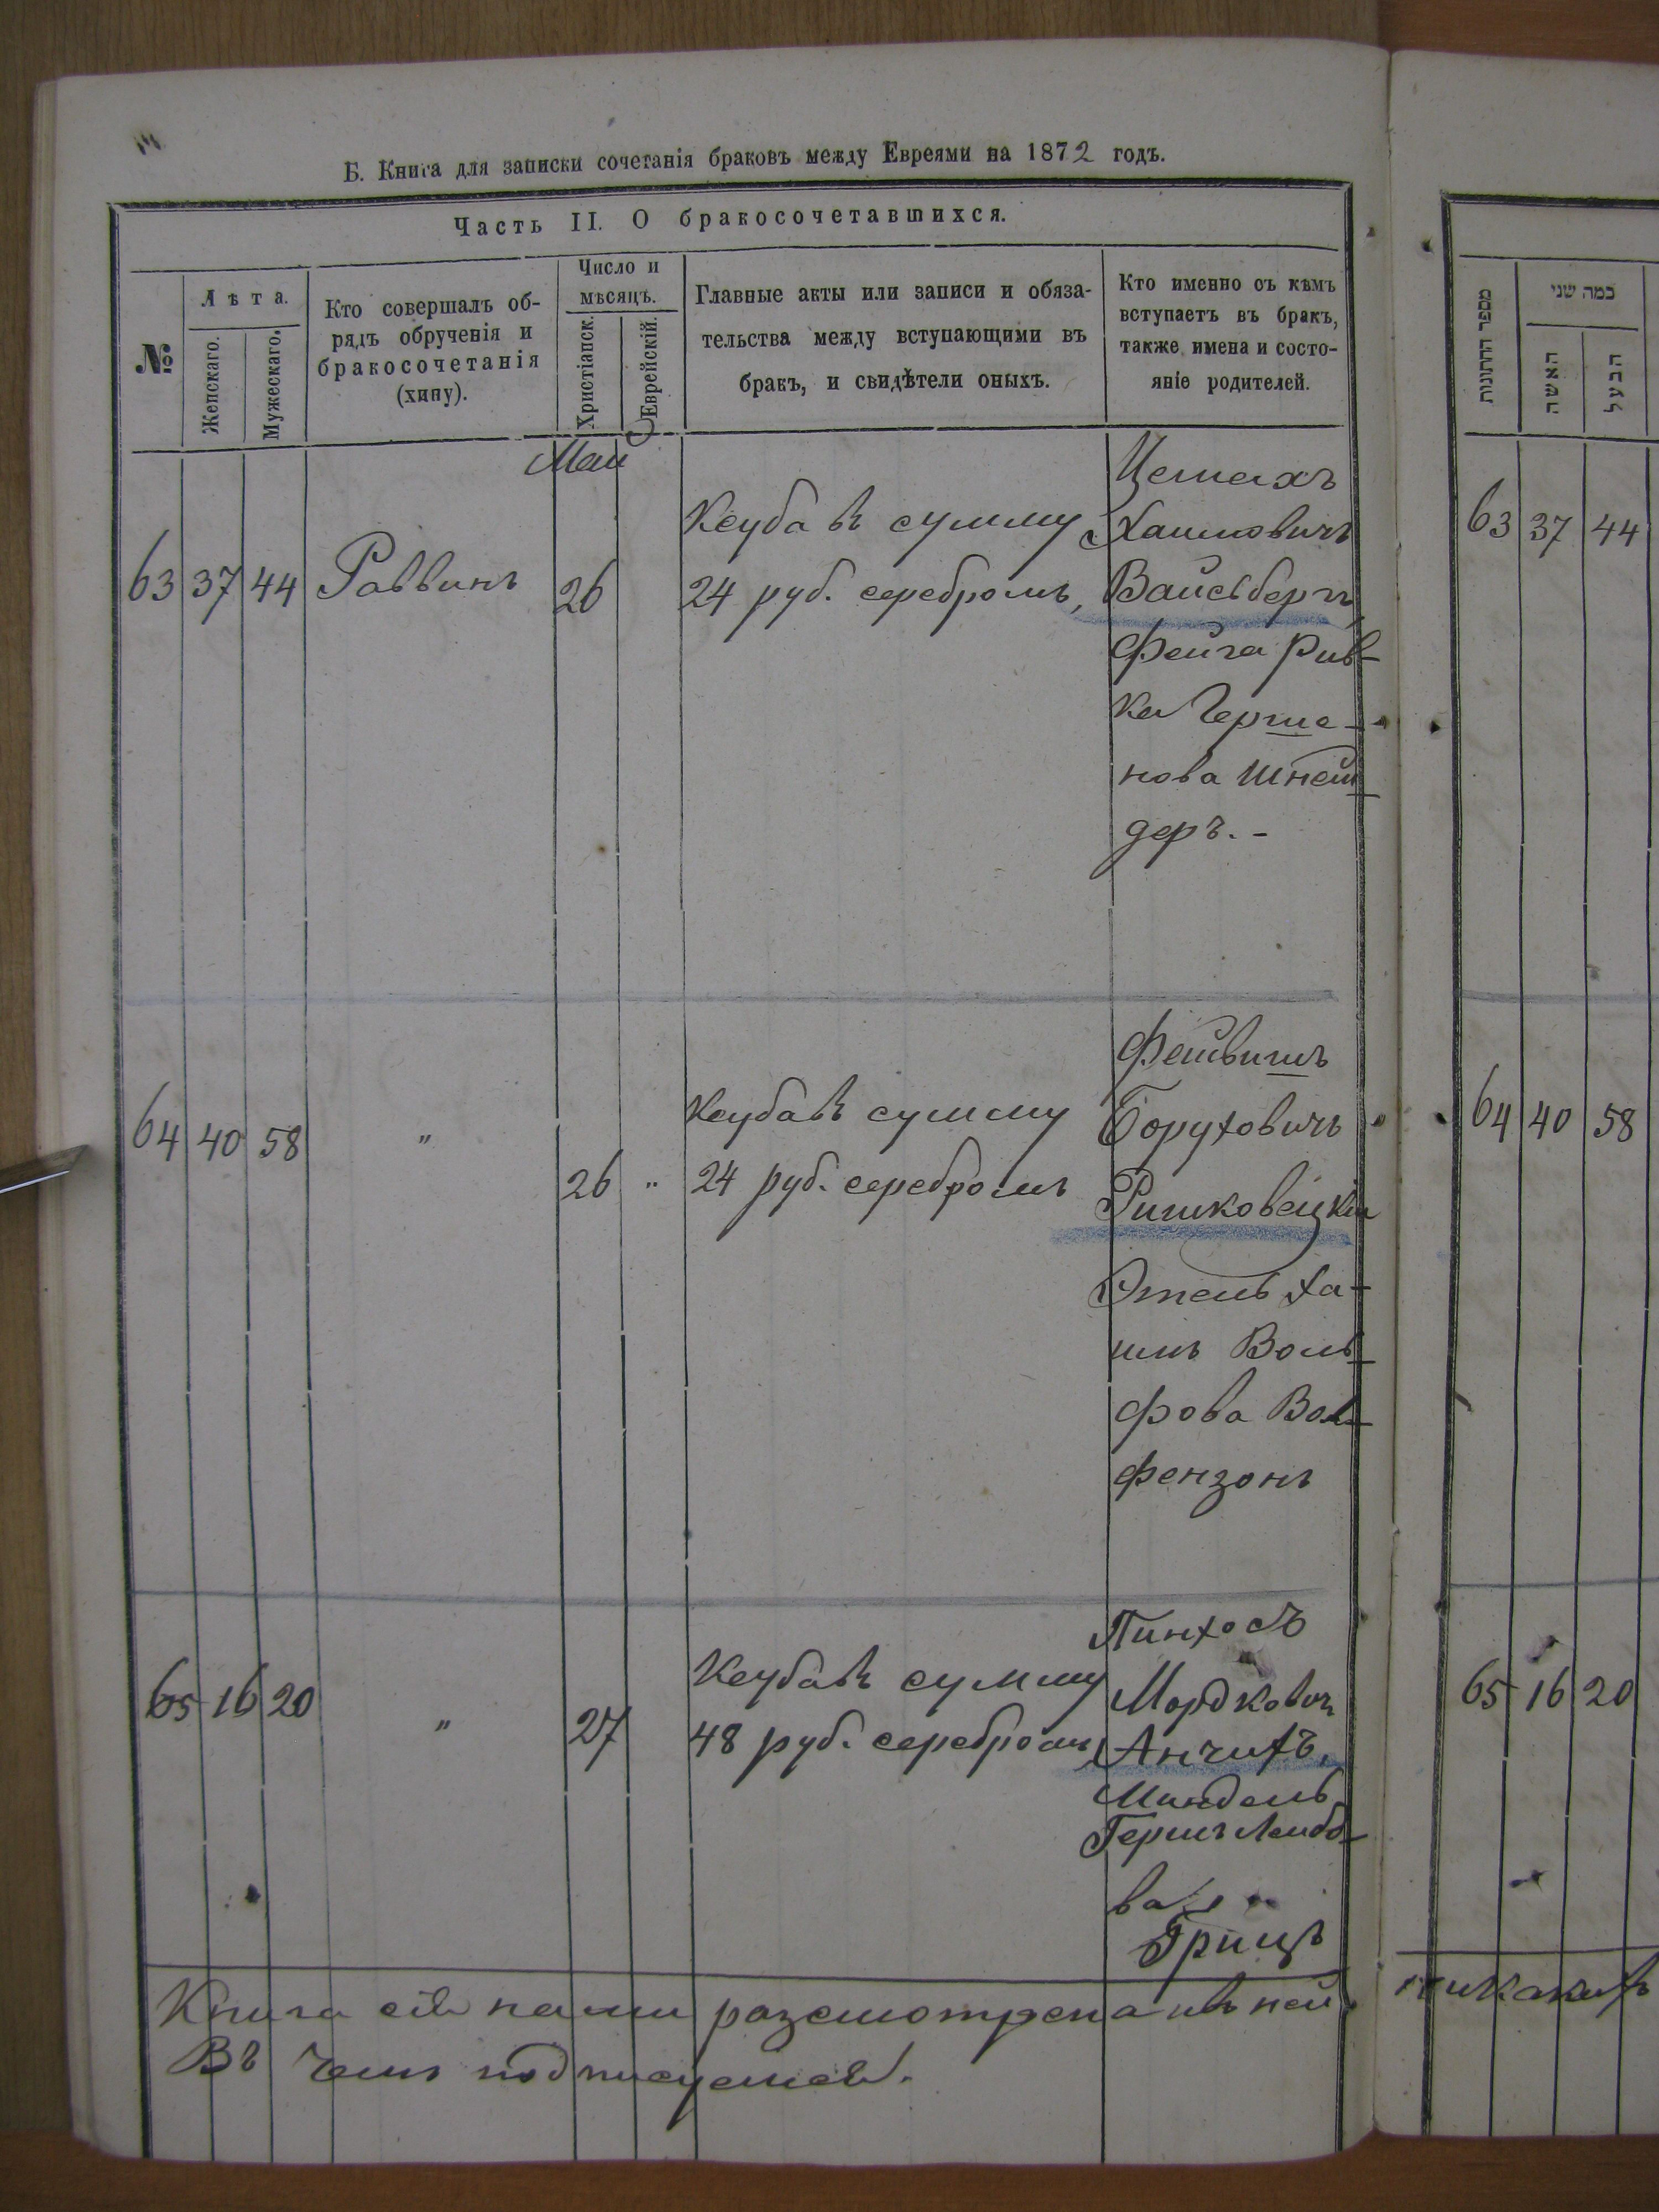 Б. Книга для записки сочетанія браковъ между Евреями на 1872 годъ.
Часть II. О бракосочетавшихся.
№
Лѣта.
Женскаго.
Мужескаго.
Кто совершалъ об-
рядъ обрученія и
бракосочетанія
(хипу).
Число и
мѣсяцъ.
Христіанск.
Еврейскій.
Главные акты или записи и обяза-
тельства между вступающими въ
бракъ, и свидѣтели оныхъ.
Кто именно съ кѣмъ
вступаетъ въ бракъ,
также имена и состо-
яніе родителей.
Май
63 37 44 Раввинъ 26
Ксуба въ сумму
24 руб. серебромъ,
Цемахъ
Хаимовичъ
Вайсбергъ,
Фейга Рив-
ка Герше-
нова Шней-
деръ.-
64 40 58 " 26 "
Ксуба въ сумму
24 руб. серебромъ
Фейвишъ
Боруховичъ
Ришковецкій
Этель Ха-
Воль-
фова Воль-
фензонъ
65 16 20 " 27
Ксуба въ сумму
48 руб. серебромъ,
Пинхосъ
Мордковичъ
Анчихъ,
Миндель
Гершъ Лейбо-
ва
Грицъ
Книга сія нами разсмотрена и въ ней
Въ чемъ подписуемся.
מספר החתונות
כמה שני
האשה
הבעל
63 37 44
64 40 58
65 16 20
никакихъ